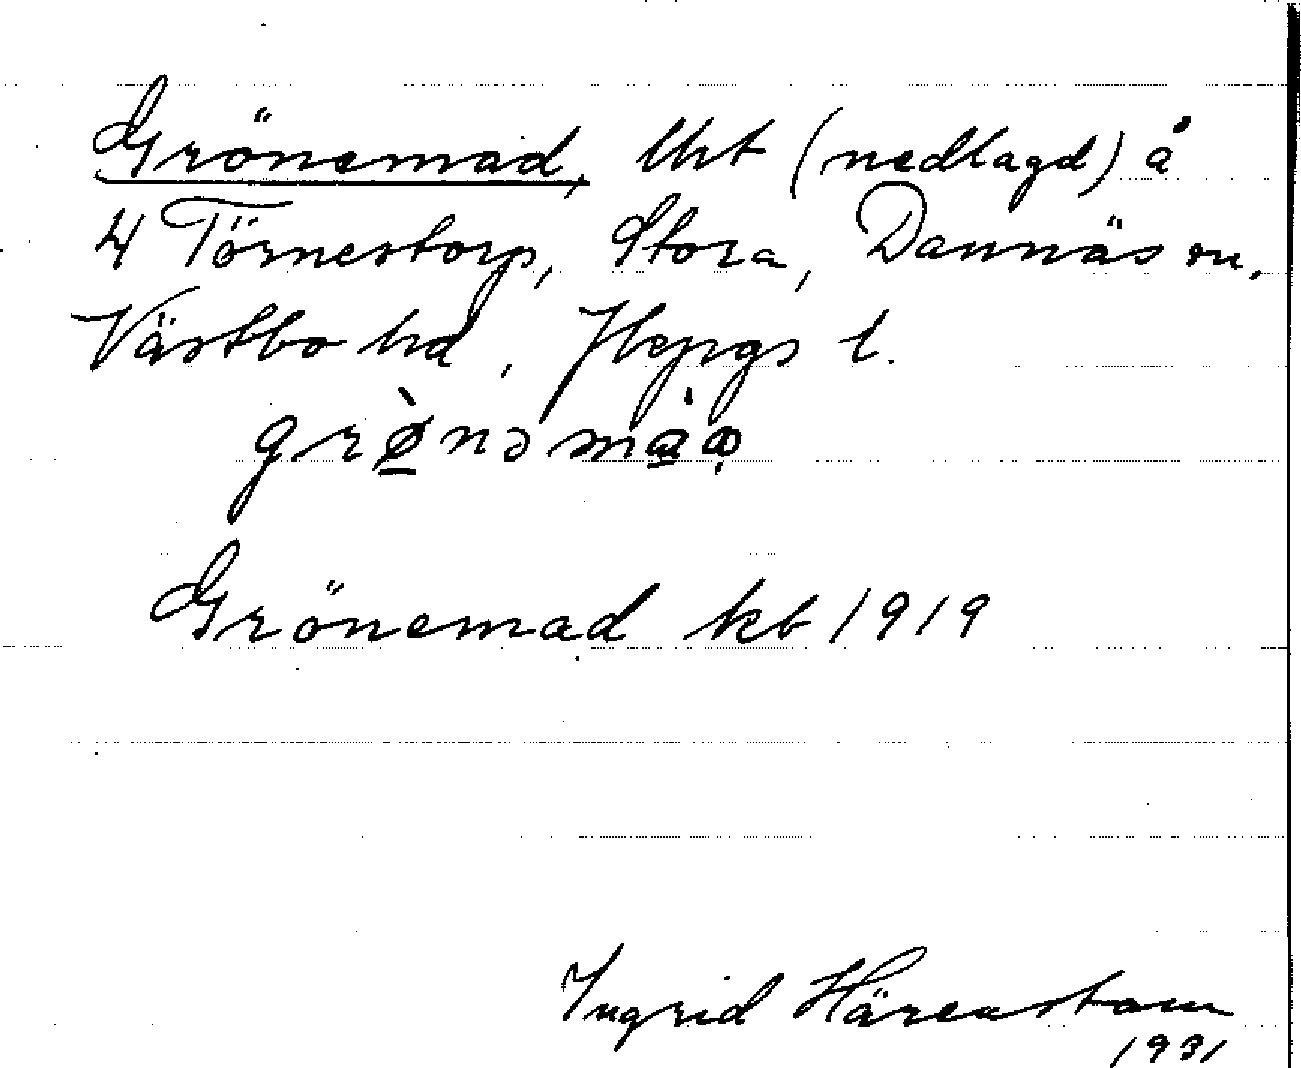 Grönemad, lht (nedlagd) å
4 Törnestorp, Stora, Dannäs sn,
Västbo hd, Jkpgs l.
grø̀nə màa
Grönemad kb 1919
Ingrid Härenstam
1931